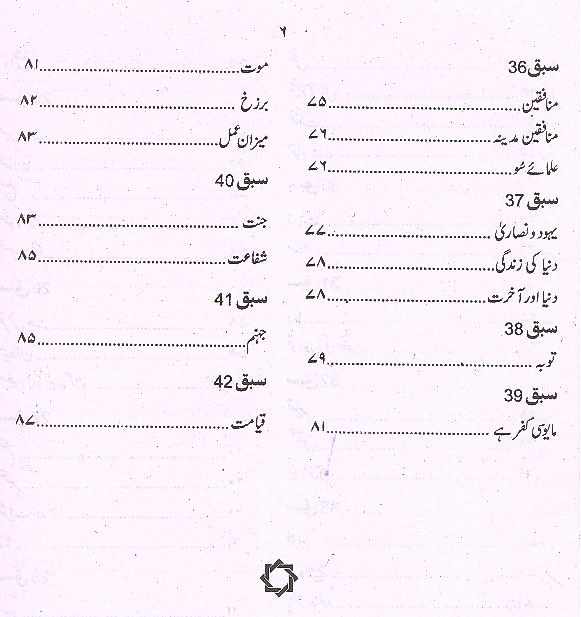 ۶
سبق 36
منافقین........................۷۵
منافقین مدینہ........................۷۶
علمائے سُو........................۷۶
سبق 37
یہود و نصاریٰ........................۷۷
دنیا کی زندگی........................۷۸
دنیا اور آخرت........................۷۸
سبق 38
توبہ........................۷۹
سبق 39
مایوسی کفر ہے........................۸۱
موت........................۸۱
برزخ........................۸۲
میزان عمل........................۸۳
سبق 40
جنت........................۸۳
شفاعت........................۸۵
سبق 41
جہنم........................۸۵
سبق 42
قیامت........................۸۷